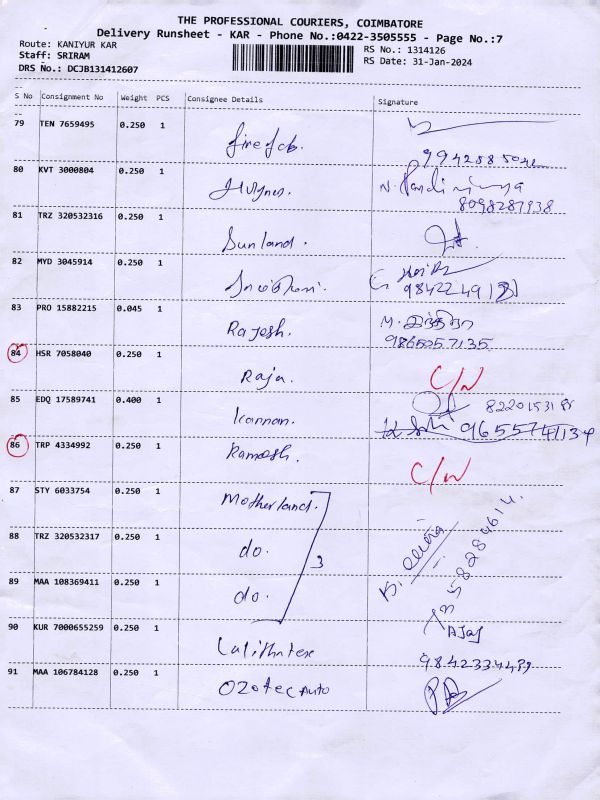 THE PROFESSIONAL COURIERS, COIMBATORE
Delivery Runsheet - KAR - Phone No.:0422-3505555 - Page No.:7
Route: KANIYUR KAR
RS No.: 1314126
Staff: SRIRAM
RS Date: 31-Jan-2024
DRS No.: DCJB131412607
S No Consignment No Weight PCS Consignee Details Signature
79 TEN 7659495 0.250 1
80 KVT 3000804 0.250 1
8098287938
81 TRZ 320532316 0.250 1 Sunland.
82 MYD 3045914 0.250 1
83 PRO 15882215 0.045 1 Rajesh. M. இந்திரா
9865057135
84 HSR 7058040 0.250 1 Raja. C/N
85 EDQ 17589741 0.400 1 Kannan.
9655741134
86 TRP 4334992 0.250 1 Ramesh. C/N
87 STY 6033754 0.250 1 Motherland.
88 TRZ 320532317 0.250 1 do.
3
89 MAA 108369411 0.250 1 do.
90 KUR 7000655259 0.250 1 Lalitha tex AJay
91 MAA 106784128 0.250 1 Ozotec Auto